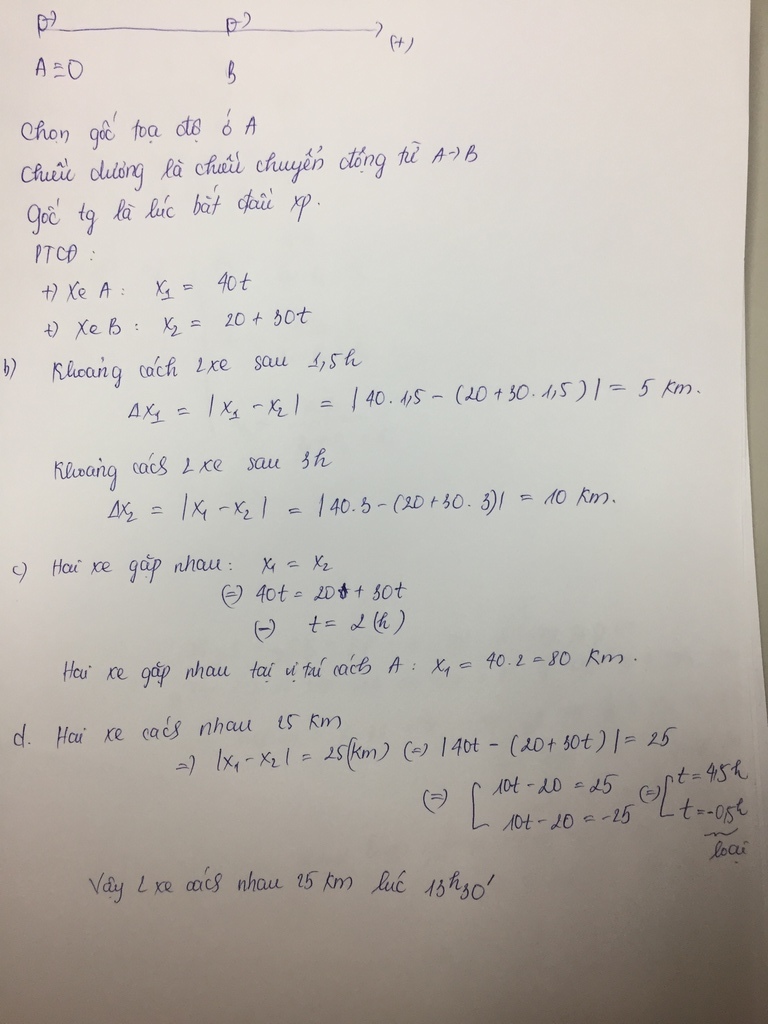 (+)
A ≡ O B
Chọn gốc toạ độ ở A
Chiều dương là chiều chuyển động từ A→B
Gốc tg là lúc bắt đầu xp.
PTCĐ :
+) Xe A : x₁ = 40t
+) Xe B : x₂ = 20 + 30t
b) Khoảng cách 2 xe sau 1,5h
Δx₁ = |x₁ - x₂| = |40.1,5 - (20+30.1,5)| = 5 km.
Khoảng cách 2 xe sau 3h
Δx₂ = |x₁ - x₂| = |40.3 - (20+30.3)| = 10 km.
c) Hai xe gặp nhau : x₁ = x₂
(=) 40t = 20 + 30t
(=) t = 2 (h)
Hai xe gặp nhau tại vị trí cách A : x₁ = 40.2 = 80 km.
d. Hai xe cách nhau 25 km
=) |x₁ - x₂| = 25(km) (=) |40t - (20+30t)| = 25
(=) [ 10t - 20 = 25 (=) [ t = 4,5h
10t - 20 = -25 t = -0,5h
loại
Vậy 2 xe cách nhau 25 km lúc 13h30'